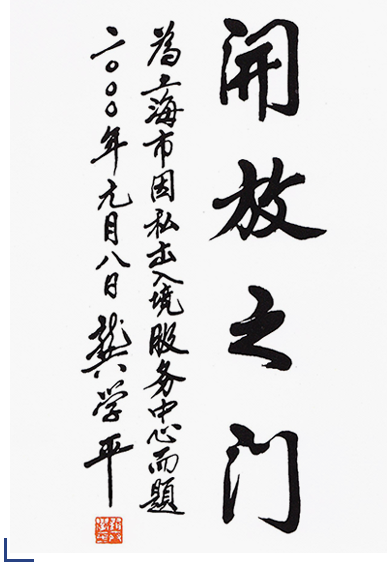 開放之门
為上海市因私出入境服务中心而题
二〇〇〇年元月八日 龔学平